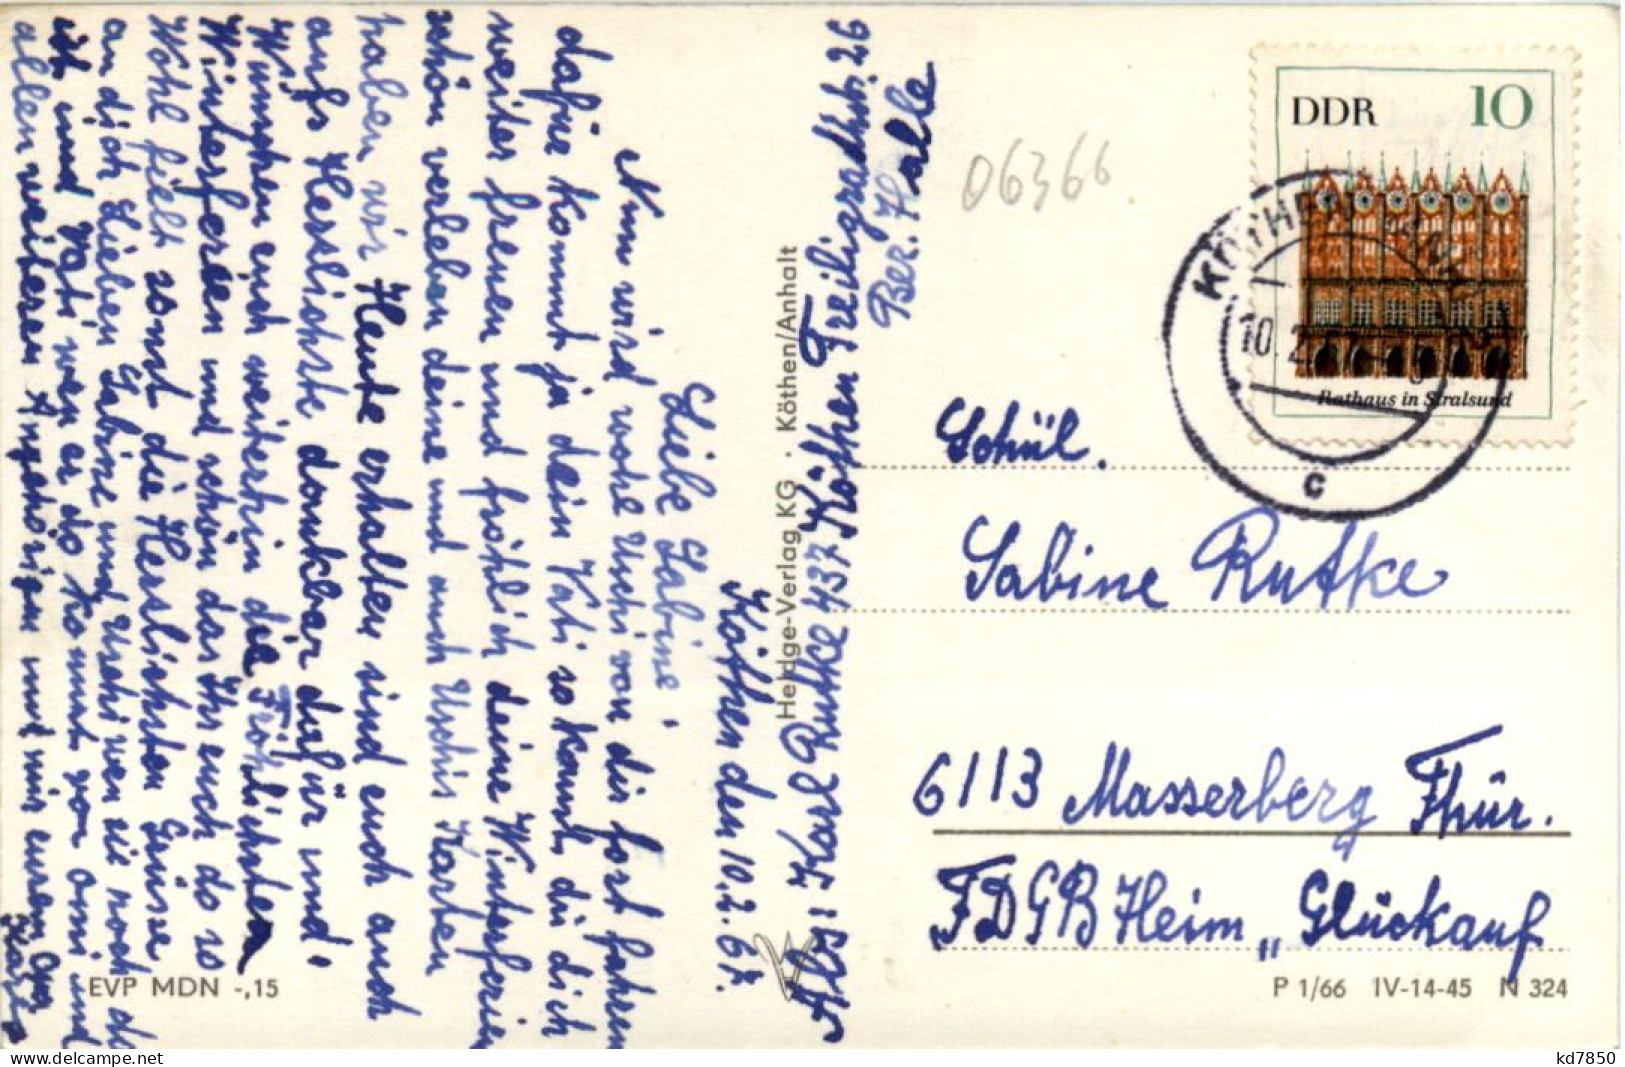 Köthen den 10.2.67.
Liebe Sabine!
Nun wird wohl Uschi von dir fort fahren
dafür kommt ja dein Vati so kannst du dich
weiter freuen und fröhlich deine Winterferien
schön verleben deine und auch Uschis Karten
haben wir Heute erhalten sind euch auch
aufs Herslichste dankbar dafür und
Wünschen euch weiterhin die Fröhlichsten
Winterferien und schön das Ihr euch do so
Wohl fühlt sonst die Herslichsten Grüsse
an dich Lieben Sabine und Uschi wen sie noch da
ist und Vati wen er do kommt von omi und
allen weiteren Angehörigen und mir euren Opa
Karl
Abs: Karl Rutke 437 Köthen Freiligrathstr. 26
Bez. Halle
Heldge-Verlag KG · Köthen/Anhalt
EVP MDN -,15
06366
DDR 10
Rathaus in Stralsund
KÖTHEN (ANH
10.2.67
c
Schül.
Sabine Rutke
6113 Masserberg Thür.
FDGB Heim „Glückauf
P 1/66 IV-14-45 N 324
kd7850
www.delcampe.net